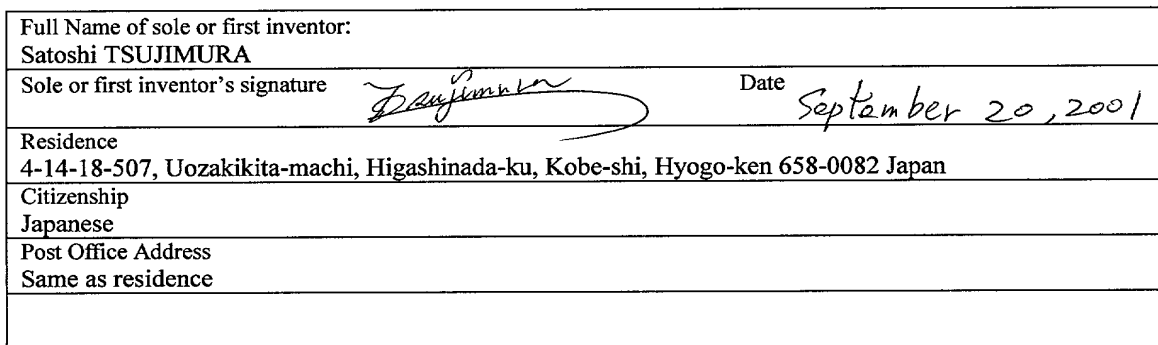 Full Name of sole or first inventor:
Satoshi TSUJIMURA
Sole or first inventor's signature Tsujimura Date September 20, 2001
Residence
4-14-18-507, Uozakikita-machi, Higashinada-ku, Kobe-shi, Hyogo-ken 658-0082 Japan
Citizenship
Japanese
Post Office Address
Same as residence